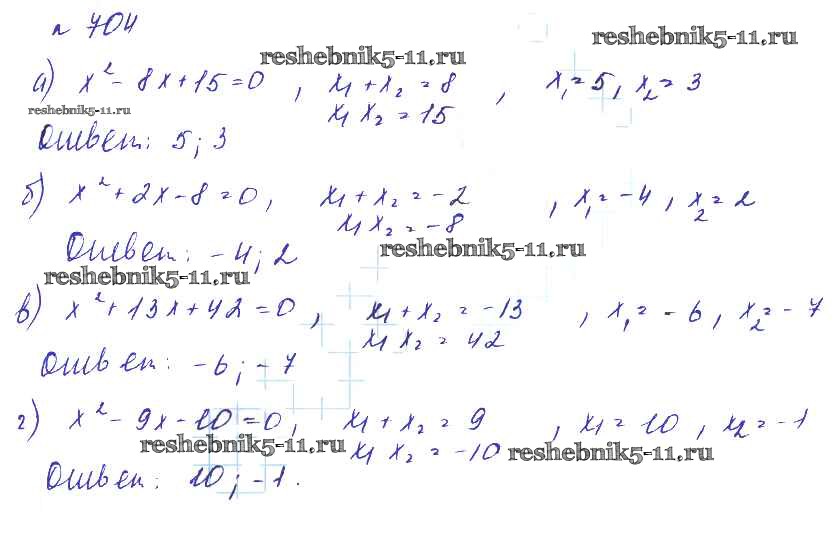 № 704
reshebnik5-11.ru reshebnik5-11.ru
а) x² - 8x + 15 = 0 , x₁ + x₂ = 8 , x₁ = 5 , x₂ = 3
reshebnik5-11.ru x₁ x₂ = 15
Ответ: 5 ; 3
б) x² + 2x - 8 = 0 , x₁ + x₂ = -2 , x₁ = -4 , x₂ = 2
x₁ x₂ = -8
Ответ: -4 ; 2 reshebnik5-11.ru
reshebnik5-11.ru
в) x² + 13x + 42 = 0 , x₁ + x₂ = -13 , x₁ = -6 , x₂ = -7
x₁ x₂ = 42
Ответ: -6 ; -7
г) x² - 9x - 10 = 0 , x₁ + x₂ = 9 , x₁ = 10 , x₂ = -1
reshebnik5-11.ru x₁ x₂ = -10 reshebnik5-11.ru
Ответ: 10 ; -1 .